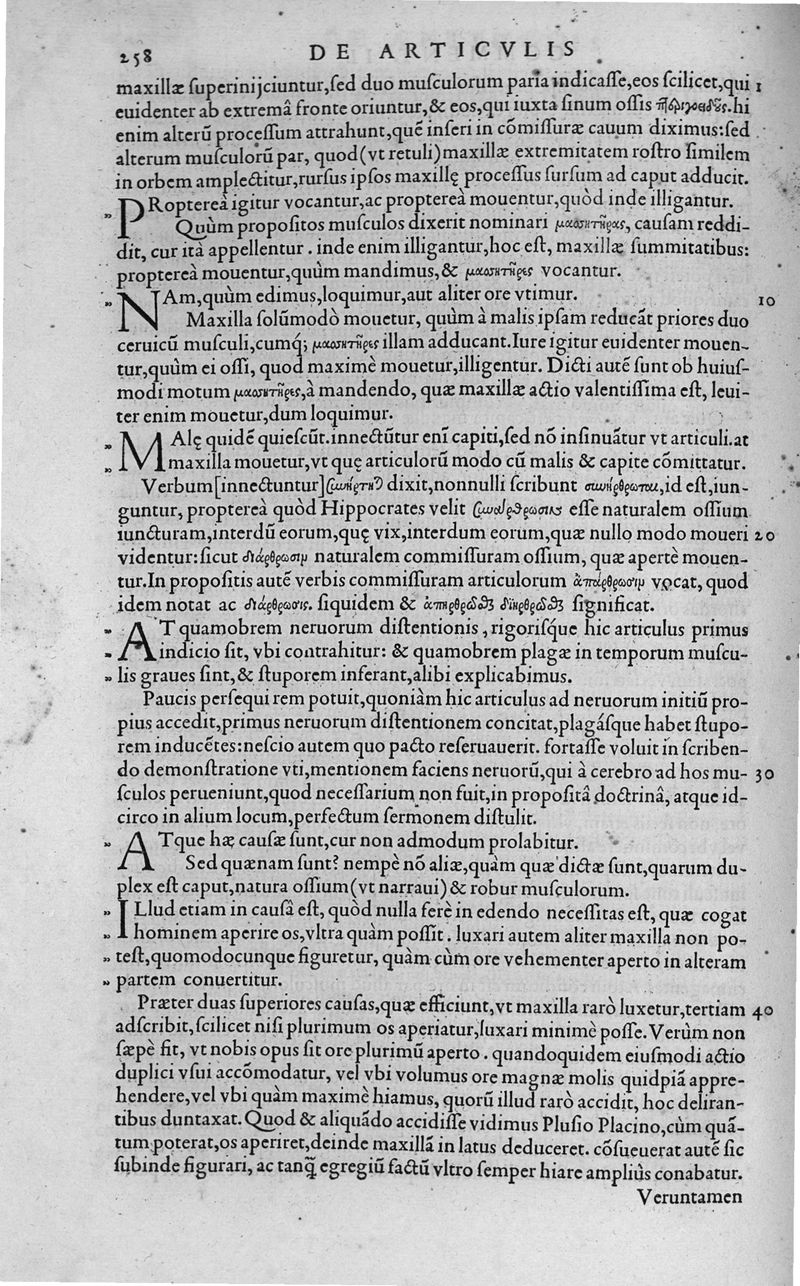 258 DE ARTICVLIS
maxillæ ſuperinijciuntur,ſed duo muſculorum paria indicaſſe,eos ſcilicet,qui 1
euidenter ab extremâ fronte oriuntur,& eos,qui iuxta ſinum oſſis hi
enim alterũ proceſſum attrahunt,quẽ inſeri in cõmiſſuræ cauum diximus:ſed
alterum muſculorũ par, quod(vt retuli)maxillæ extremitatem roſtro ſimilem
in orbem amplectitur,rurſus ipſos maxillę proceſſus ſurſum ad caput adducit.
" PRoptereà igitur vocantur,ac proptereà mouentur,quòd inde illigantur.
Quùm propoſitos muſculos dixerit nominari μασητῆρας, cauſam reddi-
dit, cur ità appellentur . inde enim illigantur,hoc eſt, maxillæ ſummitatibus:
proptereà mouentur,quùm mandimus,& μασητῆρες vocantur.
" NAm,quùm edimus,loquimur,aut aliter ore vtimur. 10
Maxilla ſolũmodò mouetur, quùm à malis ipſam reducãt priores duo
ceruicũ muſculi,cumq́; μασητῆρες illam adducant.Iure igitur euidenter mouen-
tur,quùm ei oſſi, quod maximè mouetur,illigentur. Dicti autẽ ſunt ob huiuſ-
modi motum μασητῆρες,à mandendo, quæ maxillæ actio valentiſſima eſt, leui-
ter enim mouetur,dum loquimur.
" MAlę quidẽ quieſcũt.innectũtur enĩ capiti,ſed nõ inſinuãtur vt articuli.at
" maxilla mouetur,vt quę articulorũ modo cũ malis & capite cõmittatur.
Verbum[innectuntur] dixit,nonnulli ſcribunt συνήρθρωται,id eſt,iun-
guntur, proptereà quòd Hippocrates velit συνάρθρωσιν eſſe naturalem oſſium
iuncturam,interdũ eorum,quę vix,interdum eorum,quæ nullo modo moueri 20
videntur:ſicut διάρθρωσιμ naturalem commiſſuram oſſium, quæ apertè mouen-
tur.In propoſitis autẽ verbis commiſſuram articulorum ἀπάρθρωσιμ vocat, quod
idem notat ac διάρθρωσις. ſiquidem & ἀπηρθρῶσθαι διηρθρῶσθαι ſignificat.
" AT quamobrem neruorum diſtentionis , rigoriſq́ue hic articulus primus
" indicio ſit, vbi contrahitur: & quamobrem plagæ in temporum muſcu-
" lis graues ſint,& ſtuporem inferant,alibi explicabimus.
Paucis perſequi rem potuit,quoniàm hic articulus ad neruorum initiũ pro-
pius accedit,primus neruorum diſtentionem concitat,plagáſque habet ſtupo-
rem inducẽtes:neſcio autem quo pacto reſeruauerit. fortaſſe voluit in ſcriben-
do demonſtratione vti,mentionem faciens neruorũ,qui à cerebro ad hos mu- 30
ſculos perueniunt,quod neceſſarium non fuit,in propoſitâ doctrinâ, atque id-
circo in alium locum,perfectum ſermonem diſtulit.
" ATque hæ cauſæ ſunt,cur non admodum prolabitur.
Sed quænam ſunt? nempè nõ aliæ,quàm quæ dictæ ſunt,quarum du-
plex eſt caput,natura oſſium(vt narraui)& robur muſculorum.
" ILlud etiam in cauſâ eſt, quòd nulla ferè in edendo neceſſitas eſt, quæ cogat
" hominem aperire os,vltra quàm poſſit . luxari autem aliter maxilla non po-
" teſt,quomodocunque figuretur, quàm cùm ore vehementer aperto in alteram
" partem conuertitur.
Præter duas ſuperiores cauſas,quæ efficiunt,vt maxilla rarò luxetur,tertiam 40
adſcribit,ſcilicet niſi plurimum os aperiatur,luxari minimè poſſe.Verùm non
ſæpè fit, vt nobis opus ſit ore plurimũ aperto . quandoquidem eiuſmodi actio
duplici vſui accõmodatur, vel vbi volumus ore magnæ molis quidpiã appre-
hendere,vel vbi quàm maximè hiamus, quorũ illud rarò accidit, hoc deliran-
tibus duntaxat.Quod & aliquãdo accidiſſe vidimus Pluſio Placino,cùm quã-
tum poterat,os aperiret,deinde maxillã in latus deduceret. cõſueuerat autẽ ſic
ſubinde figurari, ac tanq̃ egregiũ factũ vltro ſemper hiare ampliùs conabatur.
Veruntamen